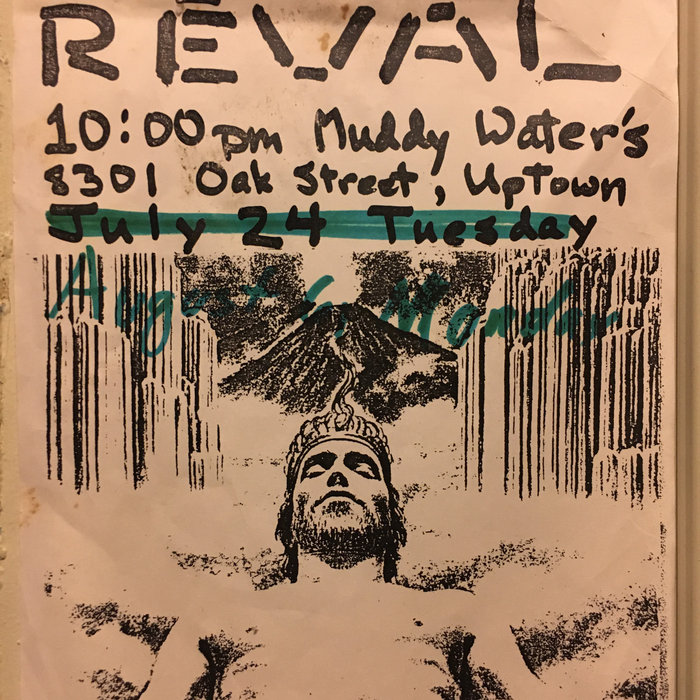 REVAL
10:00pm Muddy Water's
8301 Oak Street, Uptown
July 24 Tuesday
August 6, Monday